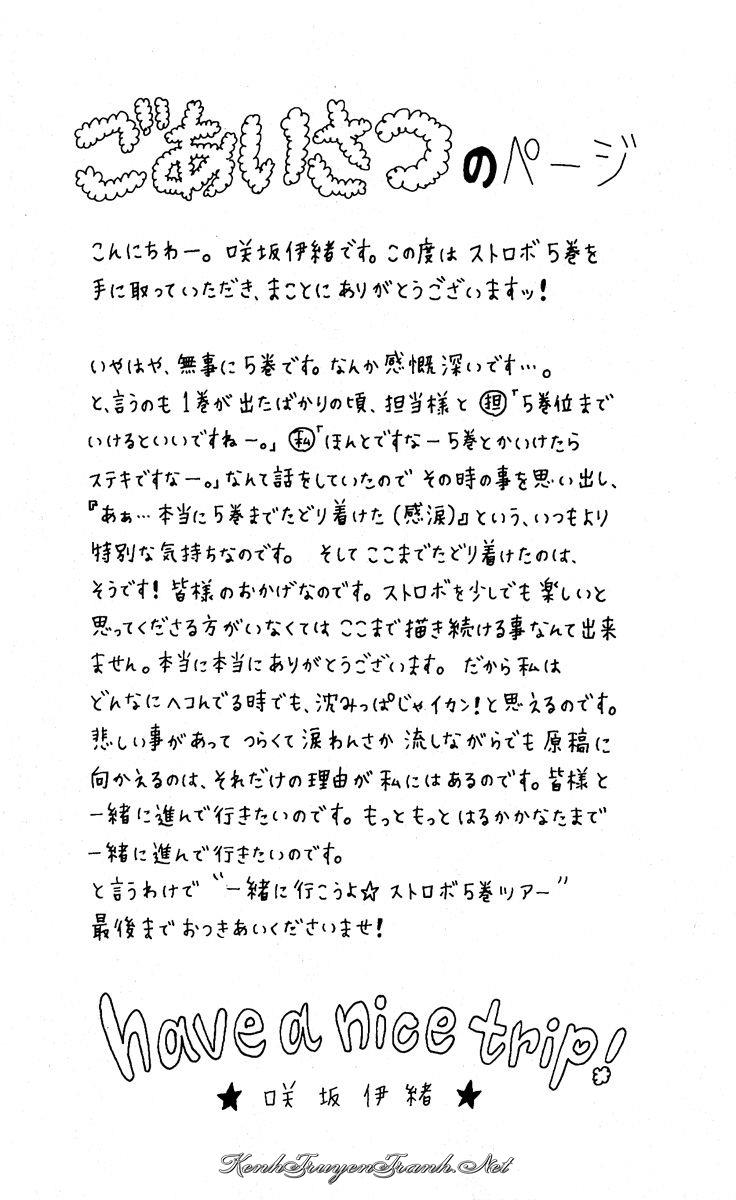 ごあいさつのページ
こんにちわー。咲坂伊緒です。この度は ストロボ5巻を
手に取っていただき、まことにありがとうございますッ!
いやはや、無事に5巻です。なんか感慨深いです…。
と、言うのも 1巻が出たばかりの頃、担当様と 担「5巻位まで
いけるといいですねー。」 私「ほんとですなー5巻とかいけたら
ステキですなー。」なんて話をしていたので その時の事を思い出し、
『あぁ…本当に5巻までたどり着けた(感涙)』という、いつもより
特別な気持ちなのです。 そしてここまでたどり着けたのは、
そうです! 皆様のおかげなのです。ストロボを少しでも楽しいと
思ってくださる方がいなくては ここまで描き続ける事なんて出来
ません。本当に本当にありがとうございます。 だから私は
どんなにヘコんでる時でも、沈みっぱじゃイカン!と思えるのです。
悲しい事があって つらくて涙わんさか流しながらでも原稿に
向かえるのは、それだけの理由が私にはあるのです。皆様と
一緒に進んで行きたいのです。もっともっとはるかかなたまで
一緒に進んで行きたいのです。
と言うわけで “一緒に行こうよ☆ ストロボ5巻ツアー”
最後までおつきあいくださいませ!
have a nice trip!
★ 咲坂伊緒 ★
KenhTruyenTranh.Net